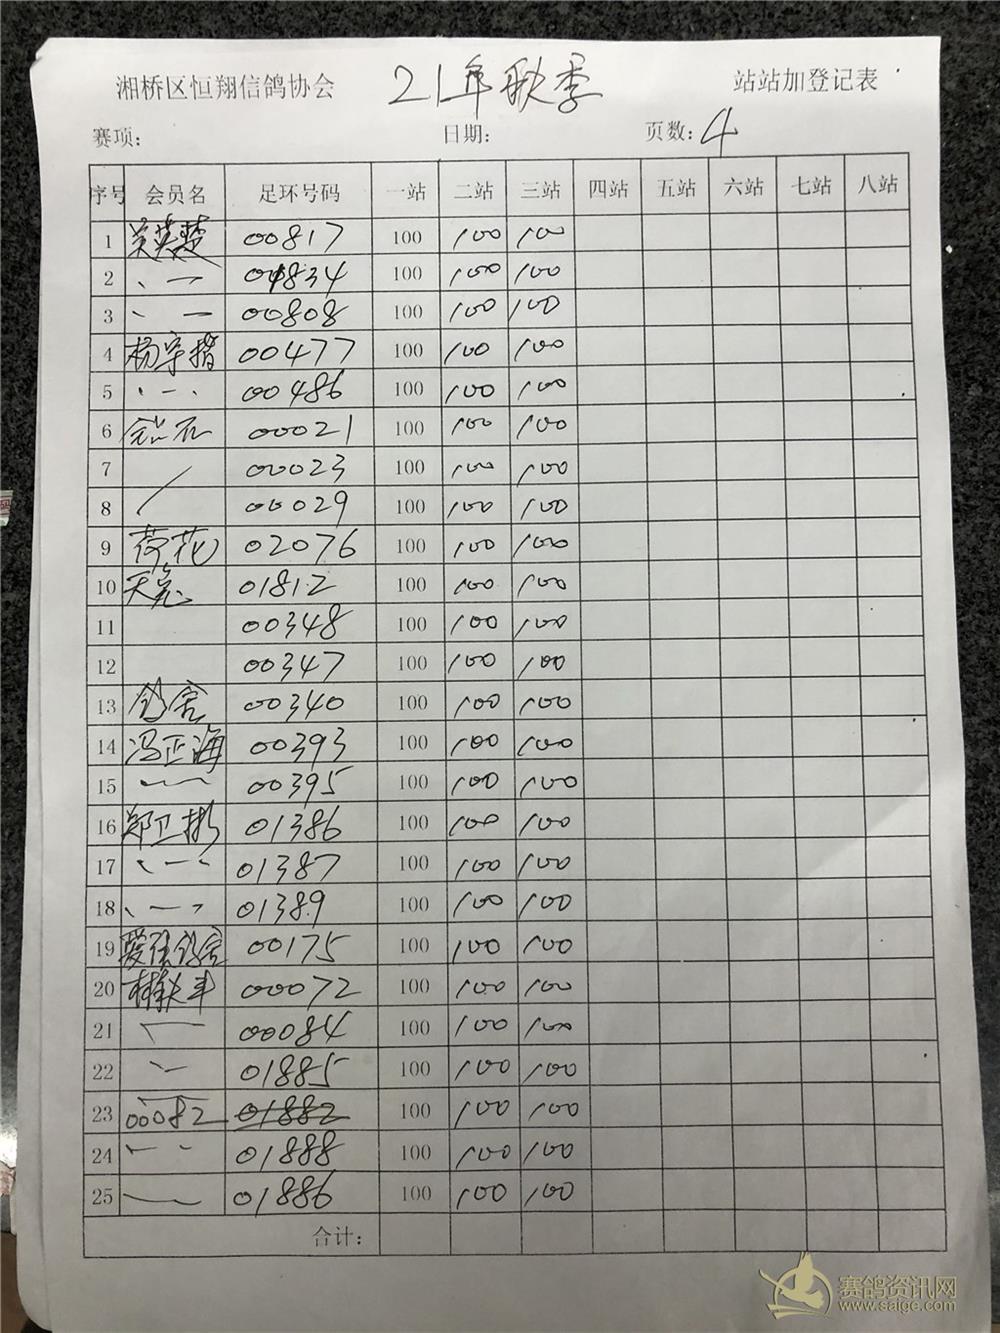 湘桥区恒翔信鸽协会 21年秋季 站站加登记表
赛项: 日期: 页数: 4
序号 会员名 足环号码 一站 二站 三站 四站 五站 六站 七站 八站
1 吴英楚 00817 100 100 100
2 、一 01834 100 100 100
3 、一 00808 100 100 100
4 杨宇楷 00477 100 100 100
5 、一、 00486 100 100 100
6 钻石 00021 100 100 100
7 00023 100 100 100
8 00029 100 100 100
9 荷花 02076 100 100 100
10 天亮 01812 100 100 100
11 00348 100 100 100
12 00347 100 100 100
13 鸽舍 00340 100 100 100
14 冯正海 00393 100 100 100
15 00395 100 100 100
16 郑卫彬 01386 100 100 100
17 、一、 01387 100 100 100
18 、一、 01389 100 100 100
19 鸽舍 00175 100 100 100
20 00072 100 100 100
21 00084 100 100 100
22 01885 100 100 100
23 00082 01882 100 100 100
24 01888 100 100 100
25 01886 100 100 100
合计:
赛鸽资讯网
www.saige.com